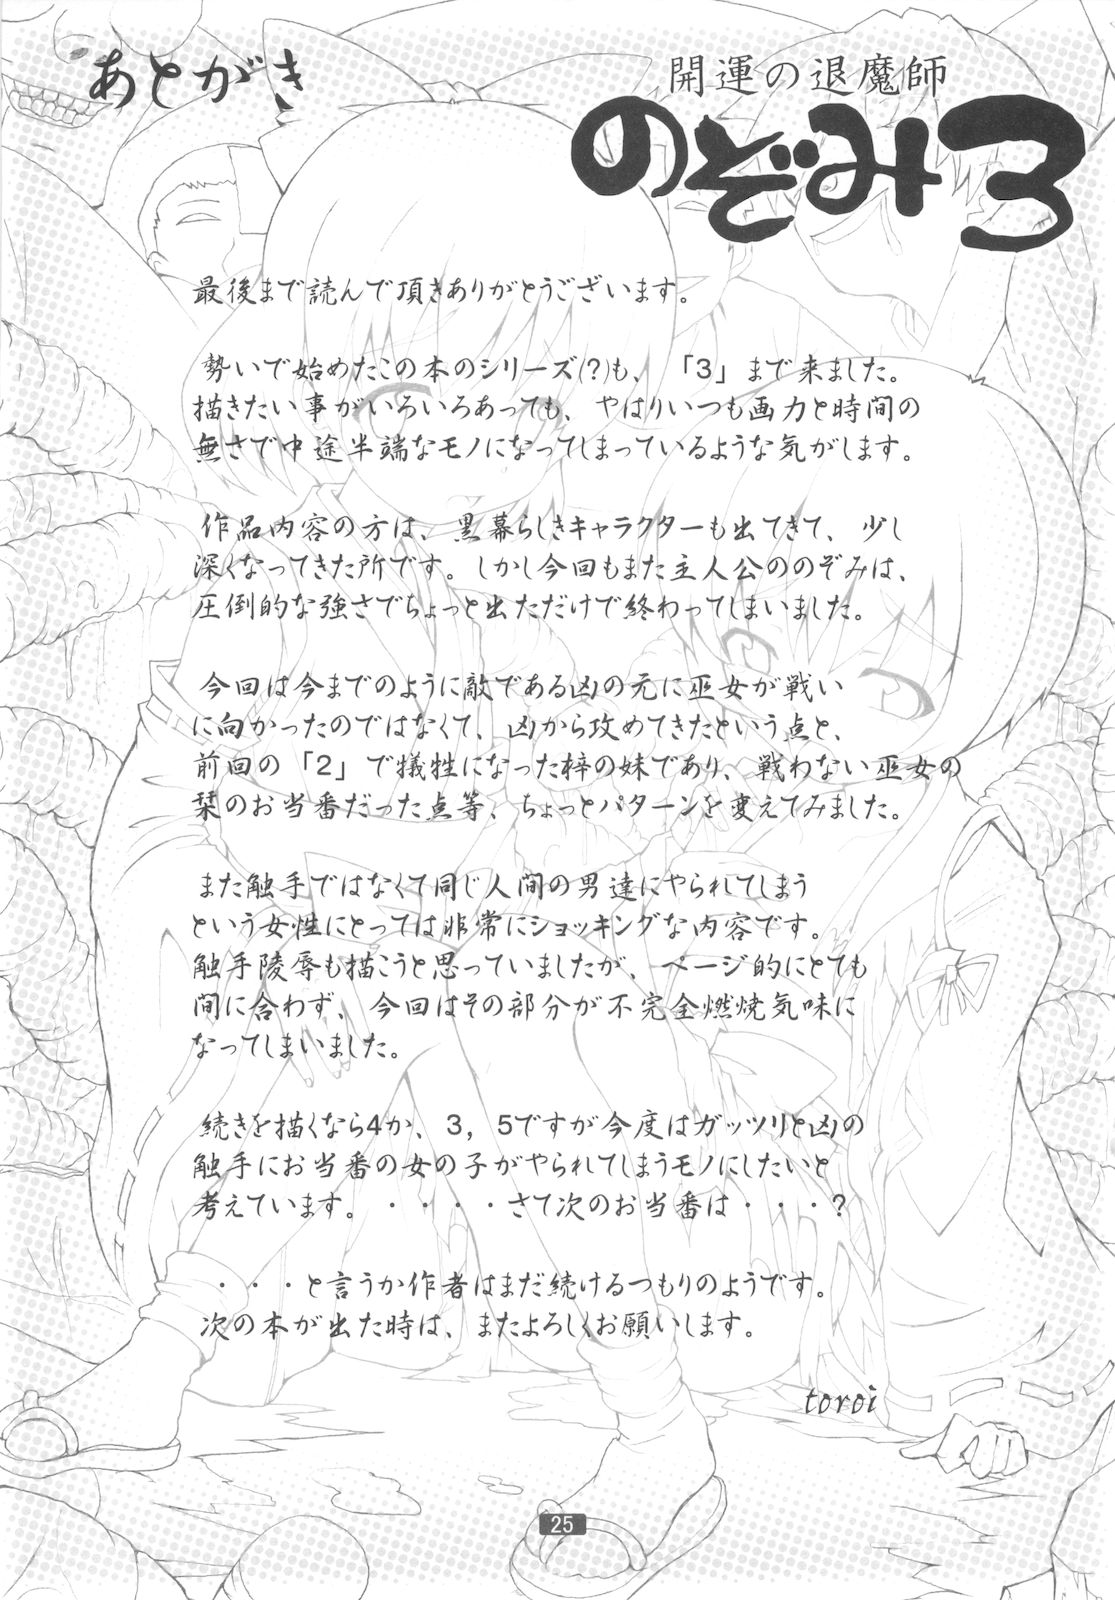 あとがき
開運の退魔師
のぞみ3
最後まで読んで頂きありがとうございます。
勢いで始めたこの本のシリーズ(?)も、「3」まで来ました。
描きたい事がいろいろあっても、やはりいつも画力と時間の
無さで中途半端なモノになってしまっているような気がします。
作品内容の方は、黒幕らしきキャラクターも出てきて、少し
深くなってきた所です。しかし今回もまた主人公ののぞみは、
圧倒的な強さでちょっと出ただけで終わってしまいました。
今回は今までのように敵である凶の元に巫女が戦い
に向かったのではなくて、凶から攻めてきたという点と、
前回の「2」で犠牲になった梓の妹であり、戦わない巫女の
栞のお当番だった点等、ちょっとパターンを変えてみました。
また触手ではなくて同じ人間の男達にやられてしまう
という女性にとっては非常にショッキングな内容です。
触手陵辱も描こうと思っていましたが、ページ的にとても
間に合わず、今回はその部分が不完全燃焼気味に
なってしまいました。
続きを描くなら4か、3，5ですが今度はガッツリと凶の
触手にお当番の女の子がやられてしまうモノにしたいと
考えています。・・・・さて次のお当番は・・・?
・・・と言うか作者はまだ続けるつもりのようです。
次の本が出た時は、またよろしくお願いします。
toroi
25